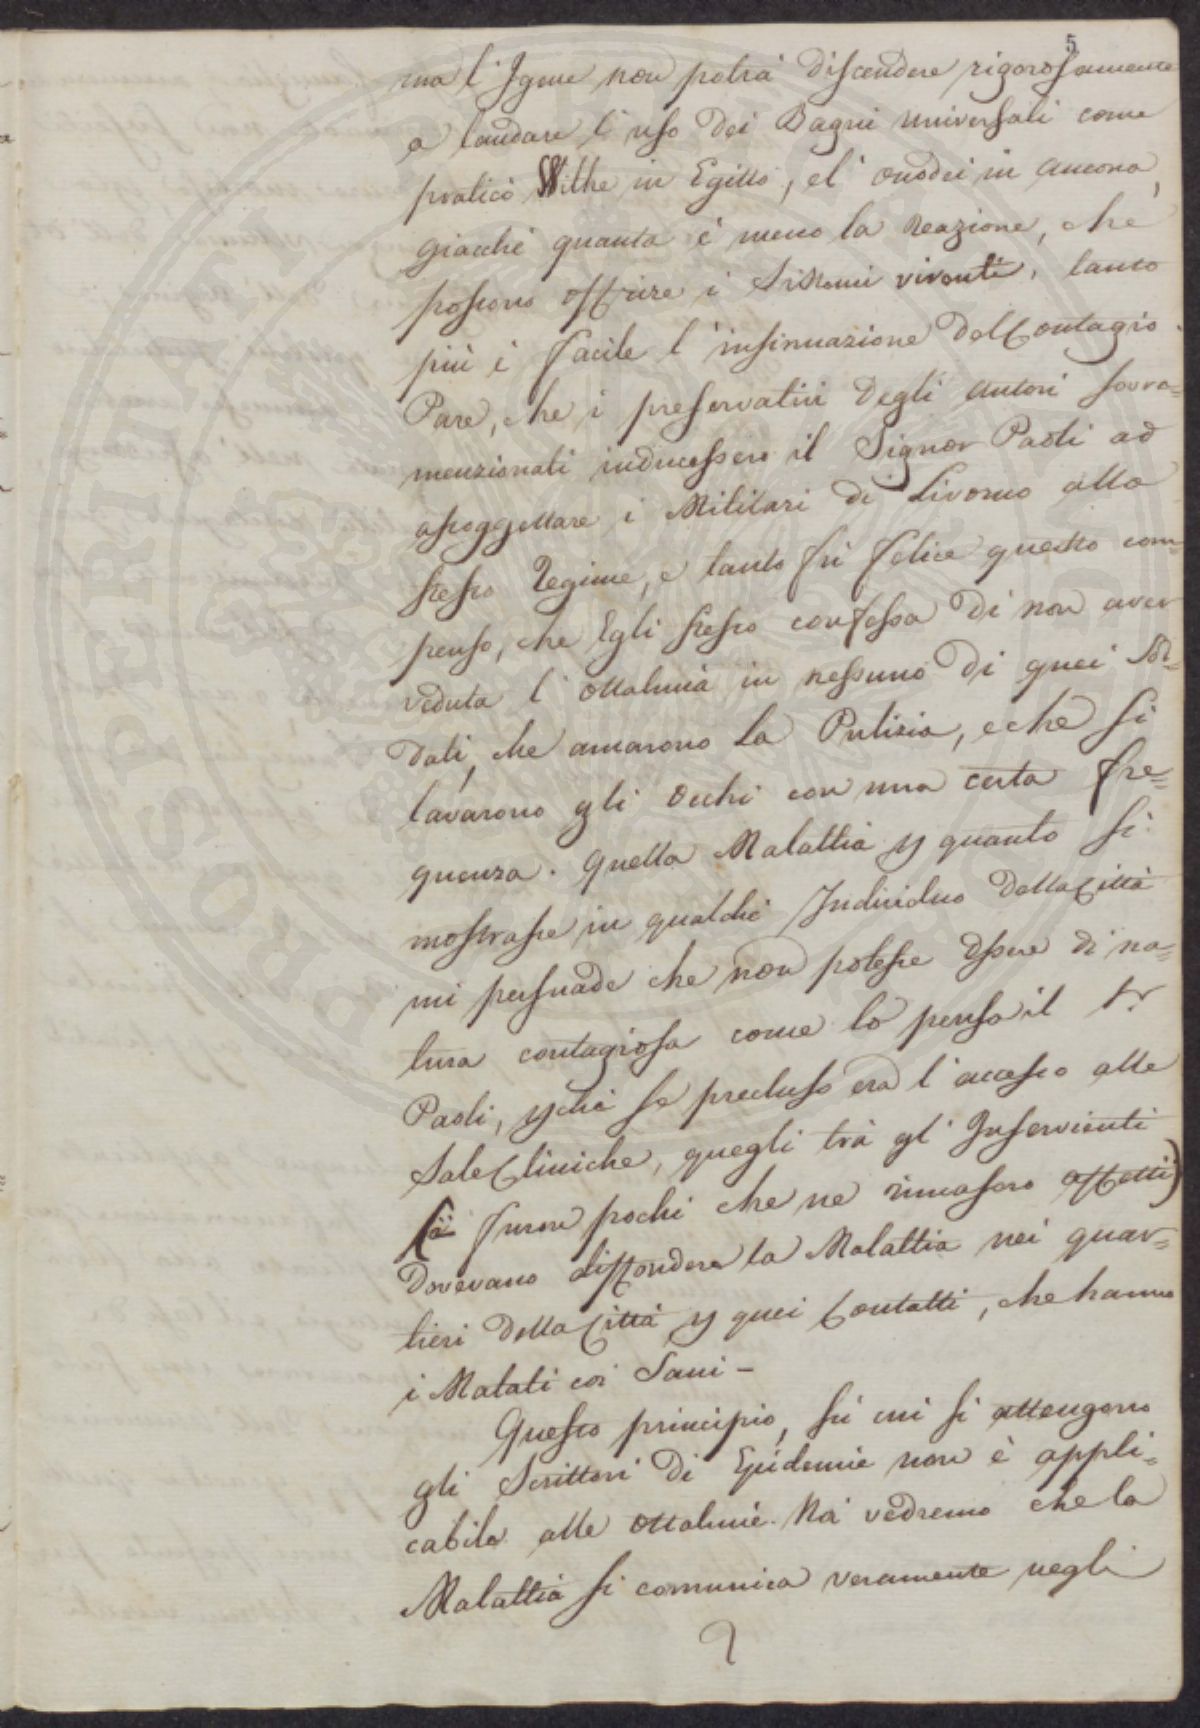 5
ma l'Igene non potrà discendere rigorosamente
a laudare l'uso dei Bagni universali come
praticò Withe in Egitto, el' Onodei in Ancona,
giacchè quanta è meno la Reazione, che
possono offrire i Sistemi viventi, tanto
più è facile l'insinuazione del Contagio.
Pare, che i preservativi degli autori sovra=
menzionati inducessero il Signor Paoli ad
assoggettare i Militari di Livorno allo
stesso Regime, e tanto fù felice questo com=
penso, che Egli stesso confessa di non aver
veduta l'ottalmia in nessuno di quei Sol=
dati, che amarono la Pulizia, e che si
lavarono gli occhi con una certa fre=
quenza. Quella Malattia p quanto si
mostrasse in qualche Individuo della Città
mi persuade che non potesse essere di na=
tura contagiosa come lo pensa il Sr
Paoli, pchè se precluso era l'accesso alle
Sale Cliniche, quegli trà gl'Inservienti
(e furon pochi che ne rimasero affetti)
dovevano diffondere la Malattia nei quar=
tieri della Città p quei Contatti, che hanno
i Malati coi Sani -
Questo principio, sù cui si attengono
gli Scrittori di Epidemie non è appli=
cabile alle ottalmie. Mà vedremo che la
Malattia si comunica veramente negli